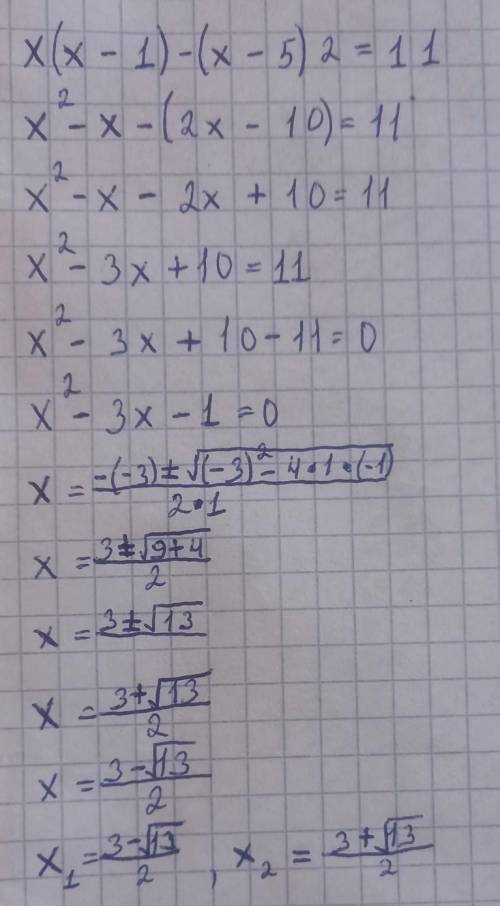 x(x - 1) - (x - 5) 2 = 11
x² - x - (2x - 10) = 11
x² - x - 2x + 10 = 11
x² - 3x + 10 = 11
x² - 3x + 10 - 11 = 0
x² - 3x - 1 = 0
x = (-(-3) ± √((-3)² - 4·1·(-1))) / (2·1)
x = (3 ± √(9+4)) / 2
x = (3 ± √13) /
x = (3 + √13) / 2
x = (3 - √13) / 2
x₁ = (3 - √13) / 2 , x₂ = (3 + √13) / 2